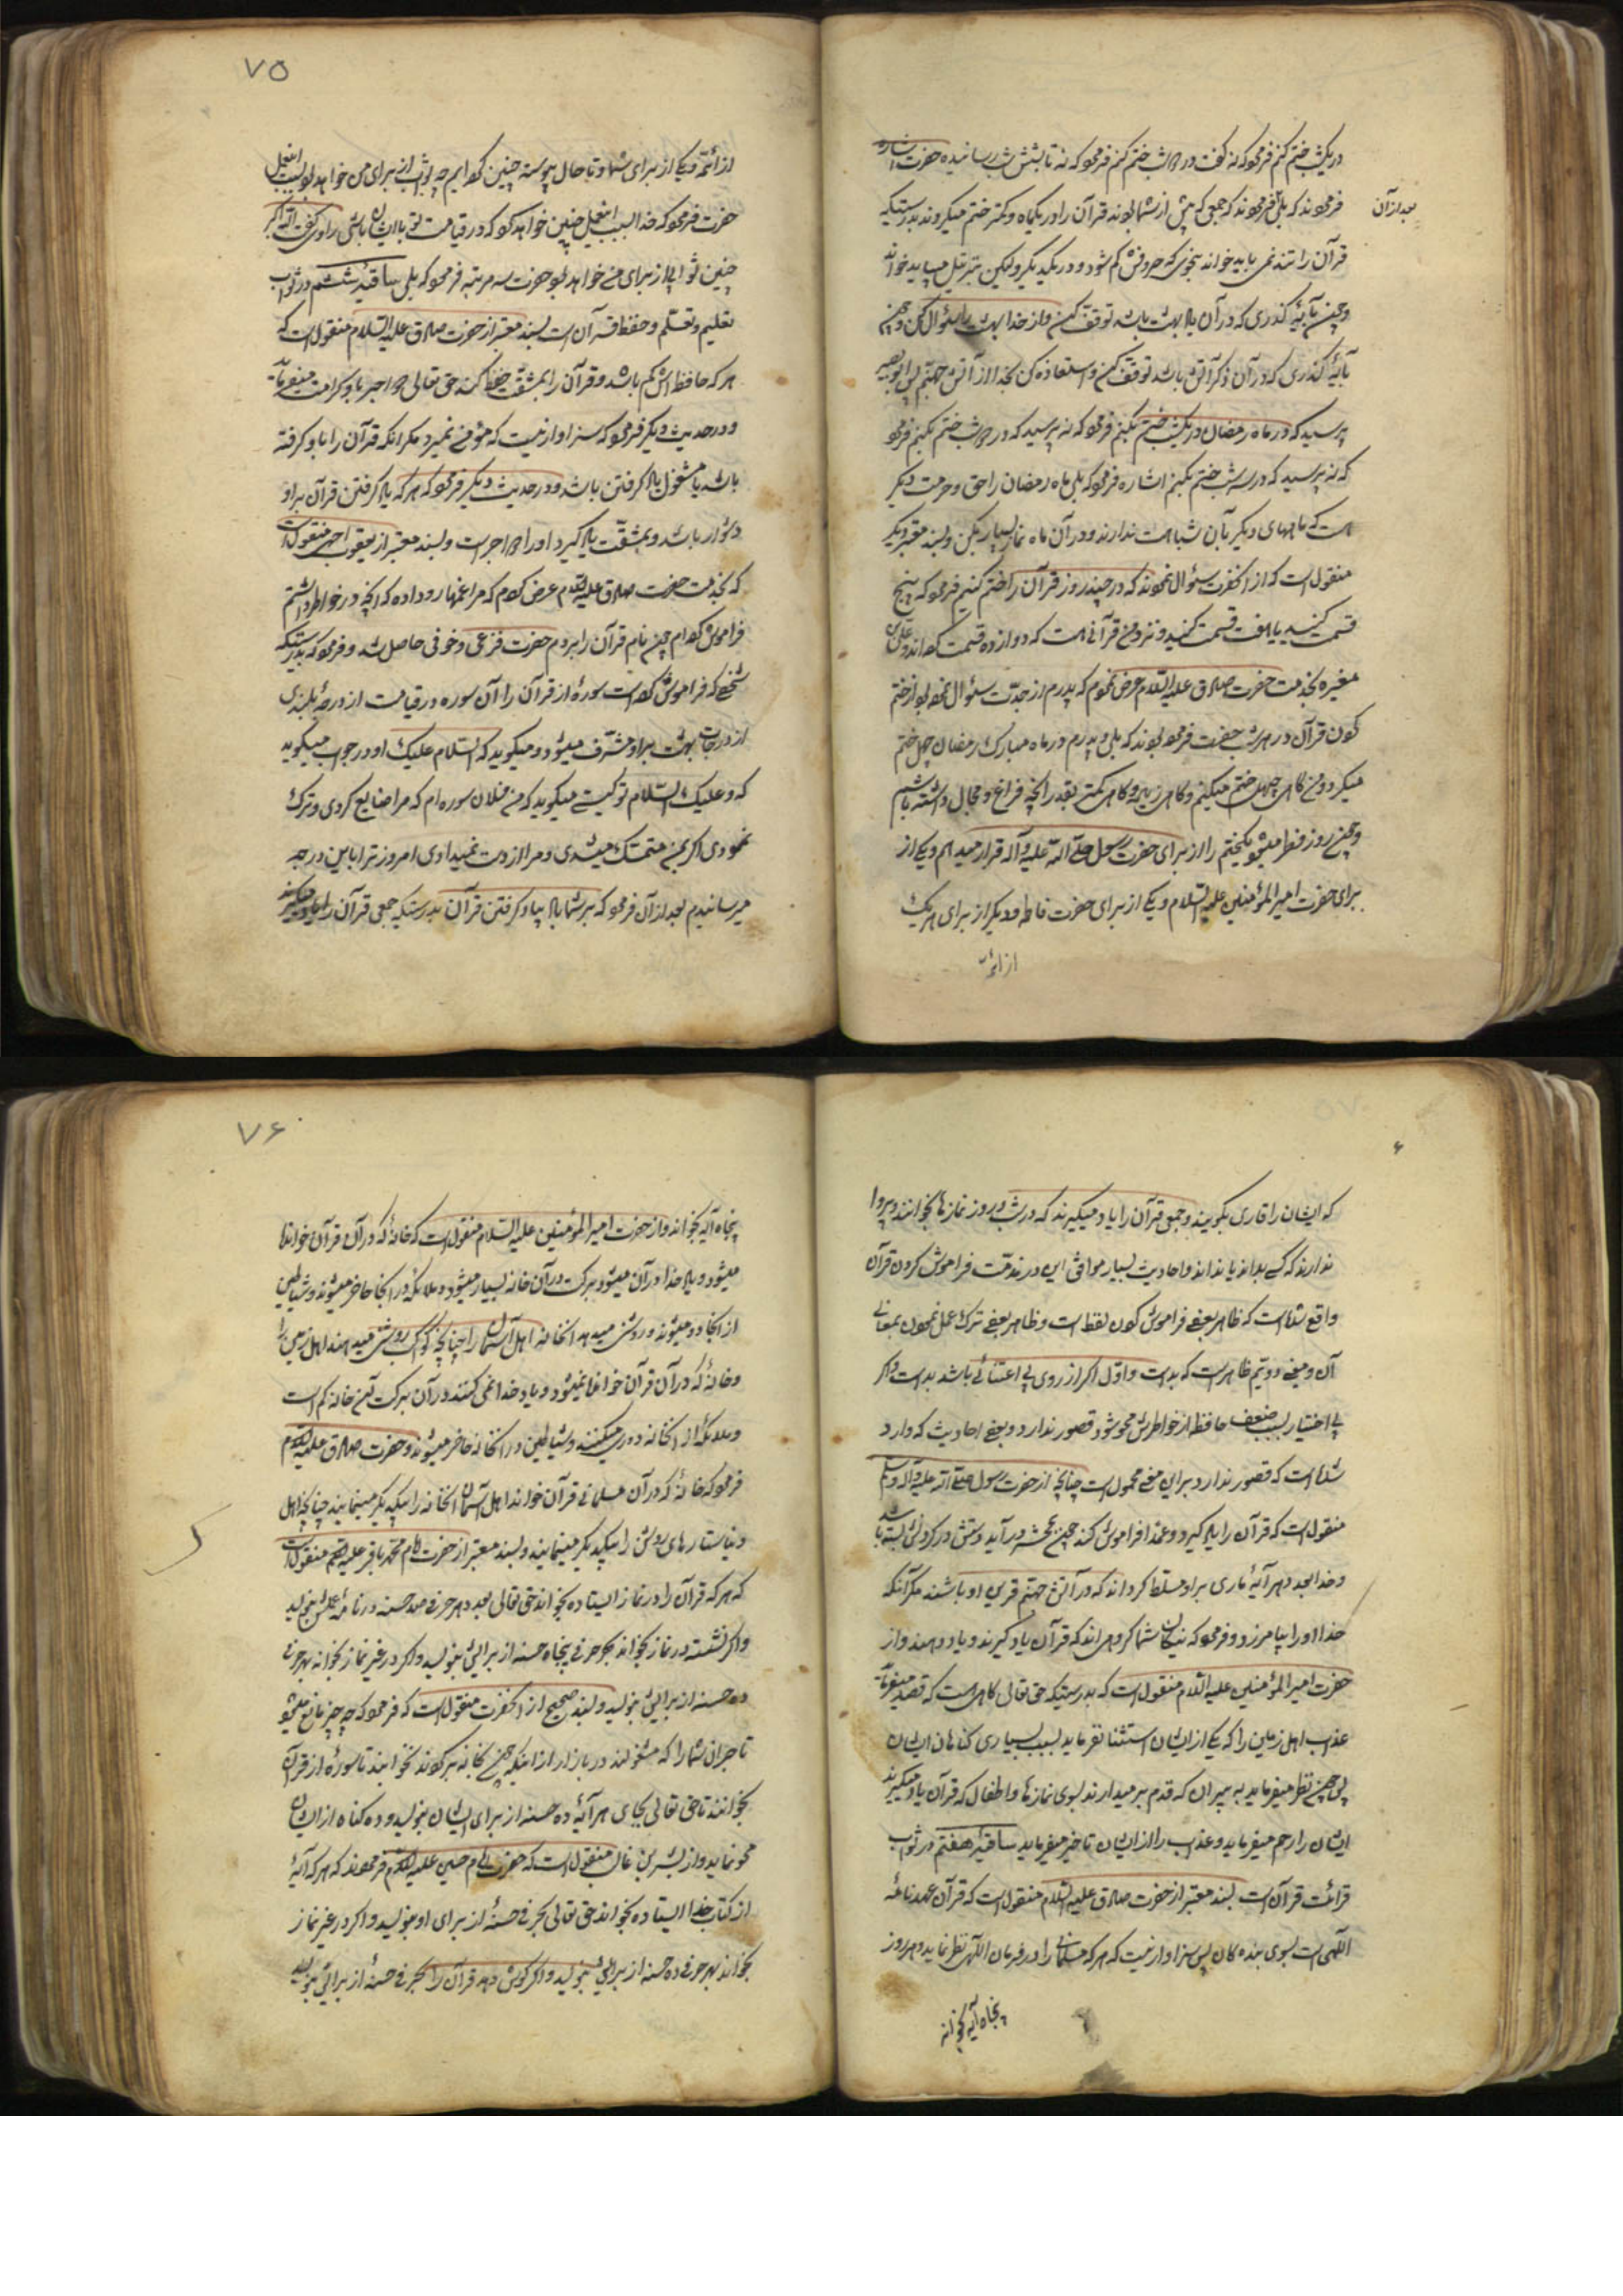 دریکشب ختم کنم فرمود که نه گفت در دو شب ختم کنم فرمود که نه تا بشش شب رسانیده حضرت اشاره
فرمودند که بلی فرمودند که جمعی که پیش از شما بودند قرآن را در یکماه و کمتر ختم میکردند بدرستیکه
بعد از آن
قرآن را تند نمی باید خواند بنحوی که حروفش کم شود و در یکدیگر ولیکن بترتیل میباید خواند
و چون بآیهٔ گذری که در آن یاد بهشت باشد توقف کن و از خدا بهشت را سئوال کن و چون
بآیهٔ گذری که در آن ذکر آتش باشد توقف کن و استعاذه کن بخدا از آتش جهنم پس ابو بصیر
پرسید که در ماه رمضان در یکشب ختم بکنم فرمود که نه پرسید که در دو شب ختم بکنم فرمود
که نه پرسید که در سه شب ختم بکنم اشاره فرمود که بلی ماه رمضان را حق و حرمت دیگر
است که ماههای دیگر بآن شباهت ندارند و در آن ماه نماز بسیار بکن و بسند معتبر دیگر
منقول است که از آنحضرت سئوال نمودند که در چند روز قرآن را ختم کنیم فرمود که پنج
قسمت کنید یا هفت قسمت کنید و نزد من قرآنی هست که دوازده قسمت کرده اند و علی بن
مغیره بخدمت حضرت صادق علیه السلام عرض نمود که پدرم از جدّت سئوال نموده بود از ختم
کردن قرآن در هر شب حضرت فرموده بودند که بلی و پدرم در ماه مبارک رمضان چهل ختم
میکرد و من گاهی چهل ختم میکنم و گاهی زیاده و گاهی کمتر بقدر آنچه فراغ و مجال داشته باشم
و چون روز فطر میشود یکختم را از برای حضرت رسول صلی الله علیه و آله قرار میدهم و یکی از
برای حضرت امیر المؤمنین علیه السلام و یکی از برای حضرت فاطمه و دیگر از برای هر یک
از ائمه
۷۵
از ائمه و یکی از برای شما و تا حال پیوسته چنین کرده ایم چه ثواب از برای من خواهد بود بسبب اینعمل
حضرت فرمود که خدا بسبب اینعمل چنین خواهد کرد که در قیامت تو با ایشان باشی راوی گفت الله اکبر
چنین ثوابی از برای من خواهد بود حضرت سه مرتبه فرمود که بلی ساقیهٔ ششم در ثواب
تعلیم و تعلّم و حفظ قرآن است بسند معتبر از حضرت صادق علیه السلام منقول است که
هر که حافظه اش کم باشد و قرآن را بمشقت حفظ کند حق تعالی دو اجر باو کرامت میفرماید
و در حدیث دیگر فرمود که سزاوار نیست که مؤمنی بمیرد مگر آنکه قرآن را یاد گرفته
باشد یا مشغول یاد گرفتن باشد و در حدیث دیگر فرمود که هر که یاد گرفتن قرآن بر او
دشوار باشد و بمشقّت یاد گیرد او را دو اجر است و بسند معتبر از یعقوب احمر منقول است
که بخدمت حضرت صادق علیه السلام عرض کردم که مرا غمها رو داده که آنچه در خواطر داشتم
فراموش کرده ام چون نام قرآن را بردم حضرت فزعی و خوفی حاصل شد و فرمود که بدرستیکه
شخصی که فراموش کرده است سورهٔ از قرآن را آن سوره در قیامت از درجهٔ بلندی
از درجات بهشت بر او مشرف میشود و میگوید که السلام علیک او در جواب میگوید
که و علیک السلام تو کیستی میگوید که من فلان سوره ام که مرا ضایع کردی و ترک
نمودی اگر بمن متمسک میشدی و مرا از دست نمیدادی امروز ترا باین درجه
میرسانیدم بعد از آن فرمود که بر شما باد بیاد گرفتن قرآن بدرستیکه جمعی قرآن را یاد میگیرند
که ایشان را قاری بگویند و جمعی قرآن را یاد میگیرند که در شب و روز نمازها بخوانند و پروا
ندارند که کسی بداند یا نداند و احادیث بسیار موافق این در مذمّت فراموش کردن قرآن
واقع شده است که ظاهر بعضی فراموش کردن لفظ است و ظاهر بعضی ترک عمل نمودن بمعانی
آن و معنی دویم ظاهر است که بد است و اول اگر از روی بی اعتنائی باشد بد است و اگر
بی اختیار بسبب ضعف حافظه از خواطرش محو شود قصور ندارد و بعضی احادیث که وارد
شده است که قصور ندارد بر این معنی محمول است چنانچه از حضرت رسول صلی الله علیه و آله و سلم
منقول است که قرآن را یاد گیرد و عمدا فراموش کند چون بمحشر درآید دستش در گردنش بسته باشد
و خدا بعدد هر آیهٔ ماری بر او مسلط گرداند که در آتش جهنم قرین او باشند مگر آنکه
خدا او را بیامرزد و فرمود که نیکان شما گروهی اند که قرآن یاد گیرند و یاد دهند و از
حضرت امیر المؤمنین علیه السلام منقول است که بدرستیکه حق تعالی گاهی است که قصد میفرماید
عذاب اهل زمین را که یکی از ایشان استثنا نفرماید بسبب بسیاری گناهان ایشان
پس چون نظر میفرماید به پیران که قدم بر میدارند بسوی نمازها و اطفال که قرآن یاد میگیرند
ایشان را رحم میفرماید و عذاب را از ایشان تاخیر میفرماید ساقیهٔ هفتم در ثواب
قرائت قرآن است بسند معتبر از حضرت صادق علیه السلام منقول است که قرآن عهد نامهٔ
الهی است بسوی بنده گان پس سزاوار نیست که هر که مسلمانی را در فرمان الهی نظر نماید و هر روز
پنجاه آیه بخواند
۷۶
پنجاه آیه بخواند و از حضرت امیر المؤمنین علیه السلام منقول است که خانهٔ که در آن قرآن خوانده
میشود و یاد خدا در آن میشود برکت در آن خانه بسیار میشود و ملائکه در آنجا حاضر میشوند و شیاطین
از آنجا دور میشوند و روشنی میدهد آنخانه اهل آسمان را چنانچه کوکب روشنی میدهند اهل زمین را
و خانهٔ که در آن قرآن خوانده نمیشود و یاد خدا نمی کنند در آن برکت آن خانه کم است
و ملائکه از آنخانه دوری میکنند و شیاطین در آنخانه حاضر میشوند و حضرت صادق علیه السلام
فرمود که خانهٔ که در آن مسلمانی قرآن خواند اهل آسمان آنخانه را بیکدیگر مینمایند چنانچه اهل
دنیا ستارهای روشن را بیکدیگر مینمایند و بسند معتبر از حضرت امام محمد باقر علیه السلام منقول است
که هر که قرآن را در نماز ایستاده بخواند حق تعالی بعدد هر حرفی صد حسنه در نامهٔ عملش بنویسد
و اگر نشسته در نماز بخواند بهر حرفی پنجاه حسنه از برایش بنویسد و اگر در غیر نماز بخواند بهر حرفی
ده حسنه از برایش بنویسد و بسند صحیح از آنحضرت منقول است که فرمود که چه چیز مانع میشود
تاجران شما را که مشغولند در بازار از اینکه چون بخانه برگردند نخوابند تا سورهٔ از قرآن
بخوانند تا حق تعالی بجای هر آیهٔ ده حسنه از برای ایشان بنویسد و ده گناه از ایشان
محو نماید و از بشر بن غالب منقول است که حضرت امام حسین علیه السلام فرمودند که هر که آیهٔ
از کتاب خدا ایستاده بخواند حق تعالی بهر حرفی حسنهٔ از برای او بنویسد و اگر در غیر نماز
بخواند بهر حرفی ده حسنه از برایش بنویسد و اگر گوش دهد قرآن را بهر حرفی حسنهٔ از برایش بنویسد